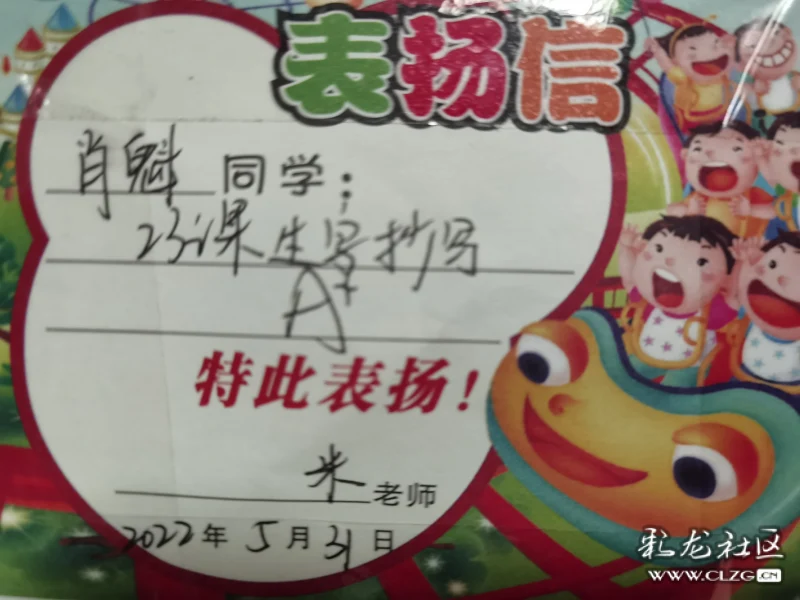 表扬信
肖魁 同学:
23课生字抄写
A+
特此表扬!
米 老师
2022年5月31日
彩龙社区
WWW.CLZG.CN